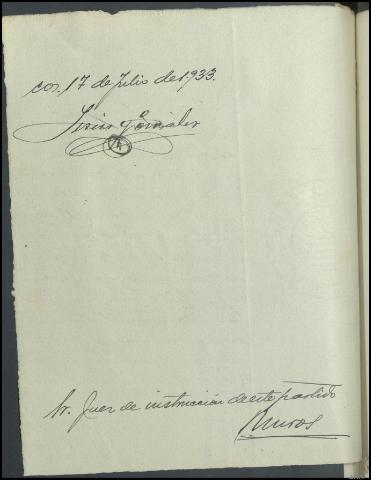 cos, 17 de Julio de 1933.
Jesús González
Sr. Juez de instrucción de este partido
Muros